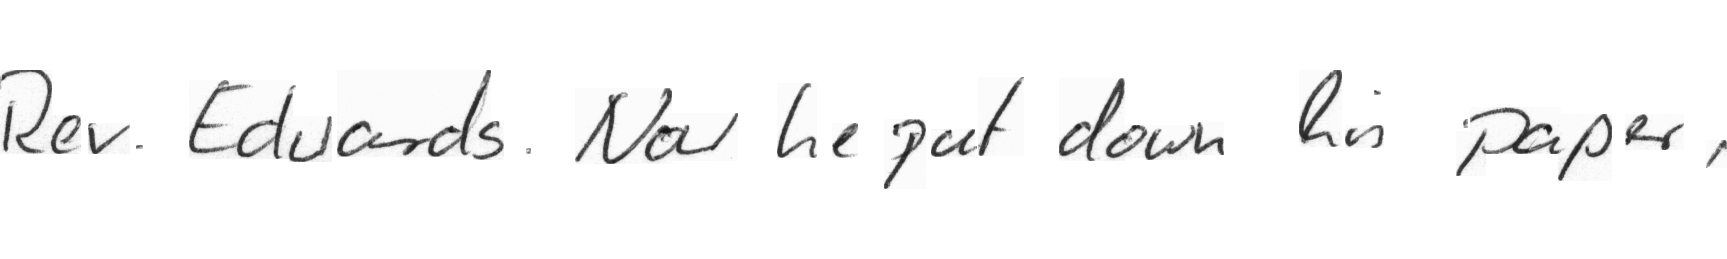 Rev. Edwards. Now he put down his paper,